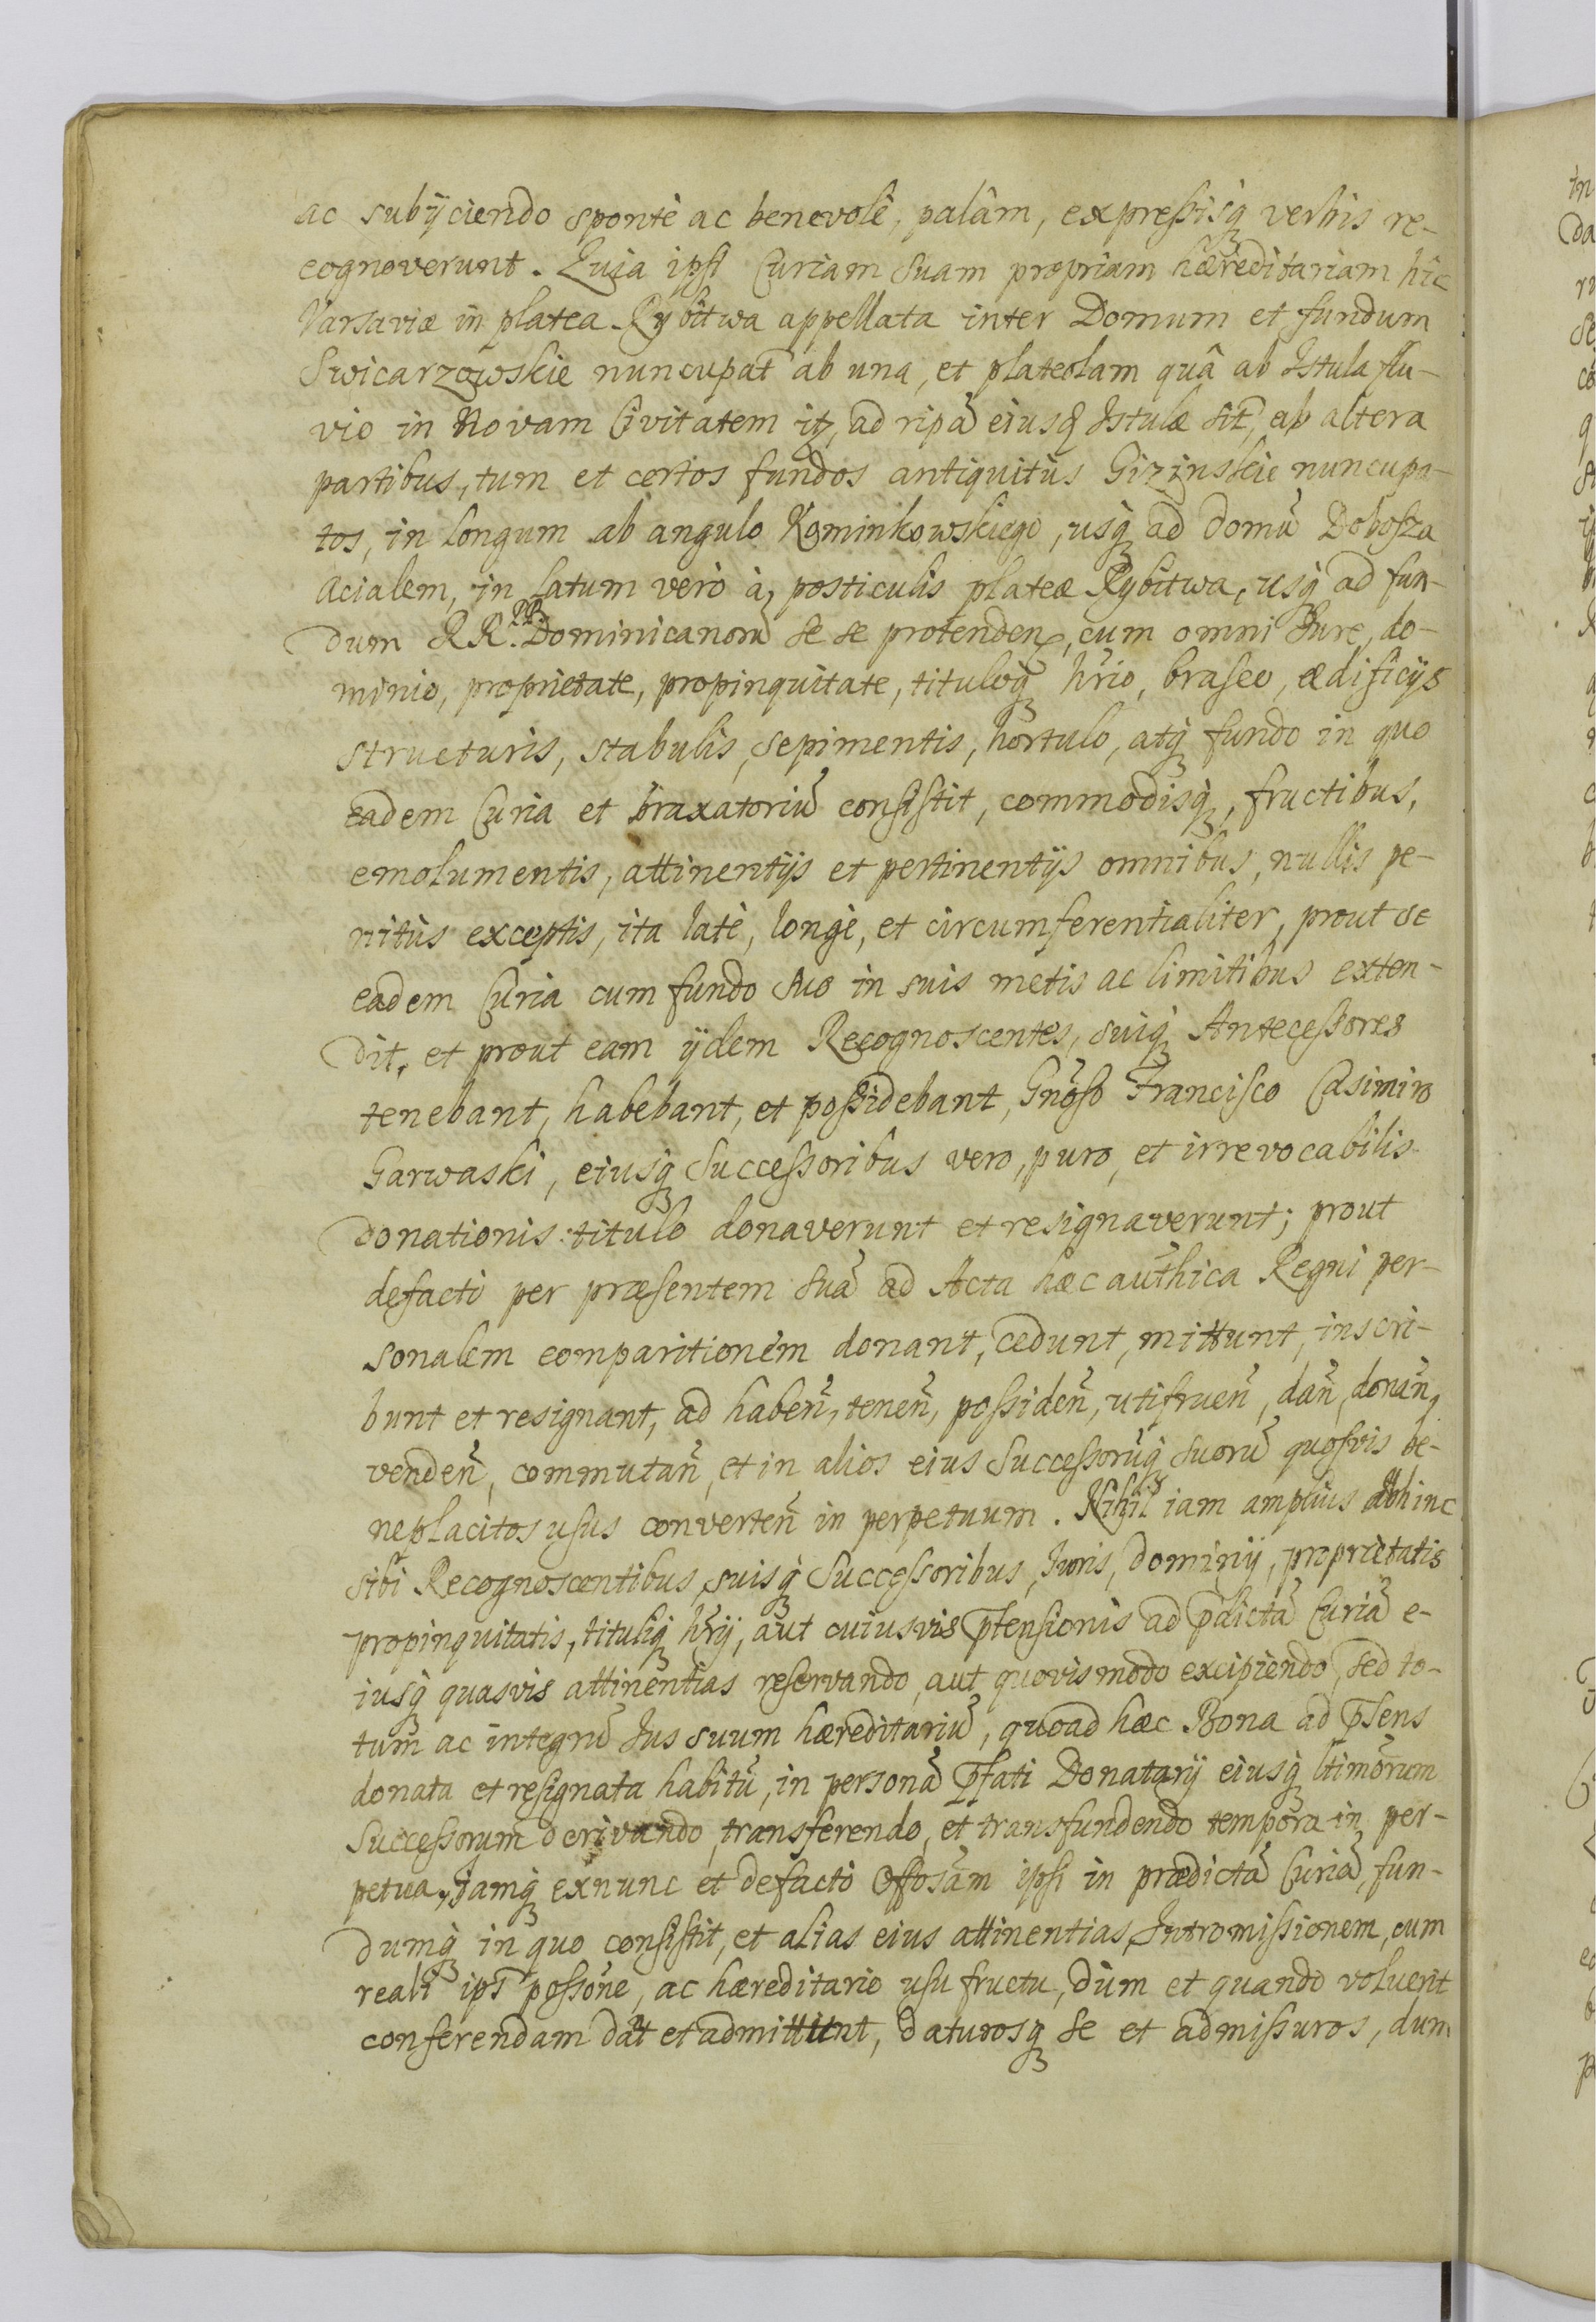 ac subÿciendo sponte ac benevolè, palàm, expressisq́ verbis re-
cognoverunt. Quia ipsi Curiam Suam propriam hæreditariam hic
Varsaviæ in platea Rybitwa appellata inter Domum et fundum
Swicarzowskie nuncupat̃ ab una, et plateolam quâ ab Istula flu-
vio in Novam Civitatem itr̃, ad ripã eiusd Istulæ sit̃, ab altera
partibus, tum et certos fundos antiquitùs Gizinskie nuncupa-
tos, in longum ab angulo Kominkowskiego, usq́ ad domũ Dobosza
acialem, in latum verò à, posticulis plateæ Rybitwa, usq́ ad fun-
dum RR. PP. Dominicanorũ se se protenden, cum omni Jure, do-
minio, proprietate, propinquitate, tituloq́ hr̃io, braseo, ædificÿs
structuris, stabulis, sepimentis, hortulo, atq́ fundo in quo
eadem Curia et braxatoriũ consistit, commodisq́, fructibus,
emolumentis, attinentÿs et pertinentÿs omnibus, nullis pe-
nitùs exceptis, ita latè, longè, et circumferentialiter, prout se
eadem Curia cum fundo suo in suis metis ac limitibus exten-
dit, et prout eam ÿdem Recognoscentes, suiq́ Antecessores
tenebant, habebant, et possidebant, Gñoso Francisco Casimiro
Garwaski, eiusq́ Successoribus vero, puro, et irrevocabilis
donationis titulo donaverunt et resignaverunt; prout
defacti per præsentem suã ad Acta hæc aũthica Regni per-
sonalem comparitionem donant, cedunt, mittunt, inscri-
bunt et resignant, ad habeñ, teneñ, possideñ, utifrueñ, dañ, donañ,
vendeñ, commutañ, et in alios eius Successorũq́ suorũ quosvis be-
neplacitos usus converteñ in perpetuum. Nihil iam amplius abhinc
sibi Recognoscentibus, suisq́ Successoribus, Juris, dominÿ, proprietatis
propinquitatis, tituliq́ hr̃ÿ, aut cuiusvis p̃tensionis ad p̃dictã Curiã e-
iusq́ quasvis attinentias reservando, aut quovismodo excipiendo, sed to-
tum ac integrũ Jus suum hæreditariũ, quoad hæc Bona ad p̃sens
donata et resignata habitũ, in personã p̃fati Donatarÿ eiusq́ ltimõrum
Successorum derivando, transferendo, et transfundendo tempora in per-
petua, Jamq́ exnunc et defacto Offosam ipsi in prædictã Curiã, fun-
dumq́ in quo consistit, et alias eius attinentias, Intromissionem, cum
reali ips̃ possõne, ac hæreditario usufructu, dum et quando voluerit
conferendam dant et admittunt, daturosq́ se et admissuros, dum